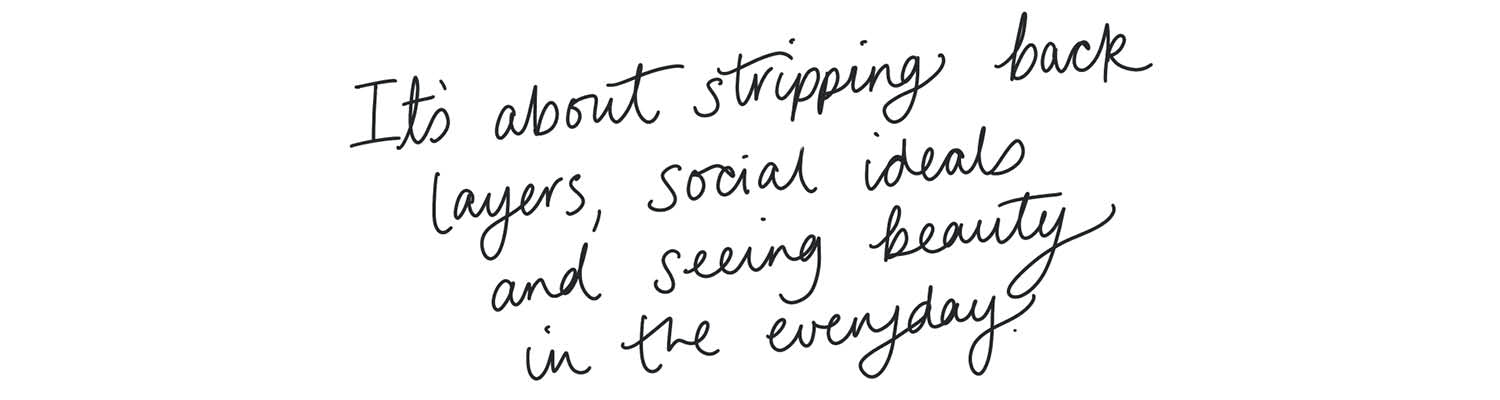 It's about stripping back
layers, social ideals
and seeing beauty
in the everyday.